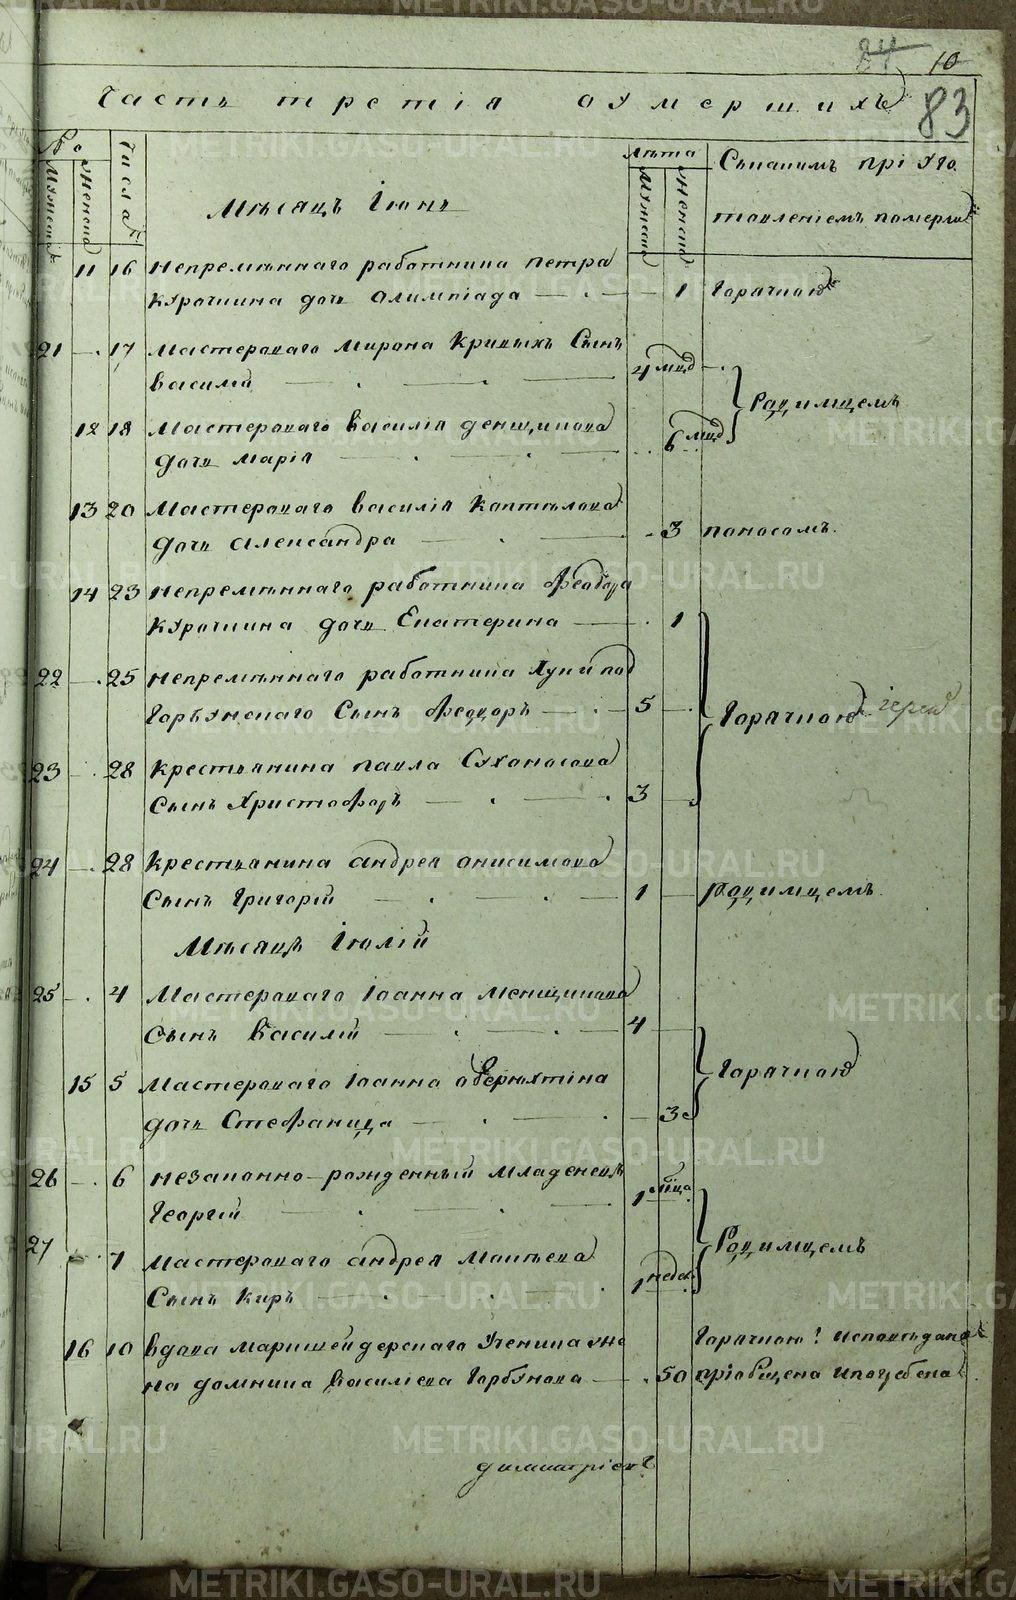 84 10
83
Часть третія о умершихъ
№
Мужеска
Женска
Числа
Мѣсяцъ Іюнь
Лѣта
Мужеска
Женска
Съ какимъ пріуго
товленіемъ померли
11 16 Непремѣннаго работника Петра
Курочкина дочь Олимпіада 1 Горячкою
21 17 Мастероваго Мирона Кривыхъ Сынъ
Василій 4 мцд
Родимцемъ
12 18 Мастероваго Василія Денщикова
дочь Марія 6 мцд
13 20 Мастероваго Василія Коптѣлова
дочь Александра 3 поносомъ.
14 23 Непремѣннаго работника Феодора
Курочкина дочь Екатерина 1
22 25 Непремѣннаго работника под
Сынъ Феодоръ 5 Горячкою іерей
23 28 Крестьянина Павла Сухоносова
Сынъ Христофоръ 3
24 28 Крестьянина Андрея Анисимова
Сынъ Григорій 1 Родимцемъ
Мѣсяцъ Іюлій
25 4 Мастероваго Іоанна Менщикова
Сынъ Василій 4
Горячкою
15 5 Мастероваго Іоанна Оберюхтина
дочь Стефанида 3
26 6 Незаконно-рожденный младенецъ
Георгій 1 мца
Родимцемъ
27 7 Мастероваго Андрея Мокѣева
Сынъ Киръ 1 недел
16 10 Вдова Маркшейдерскаго Ученика же
на Домника Васильева Горбунова 50
Горячкою! исповѣдана
пріобщена и погребена
Димитріевъ
METRIKI.GASO-URAL.RU